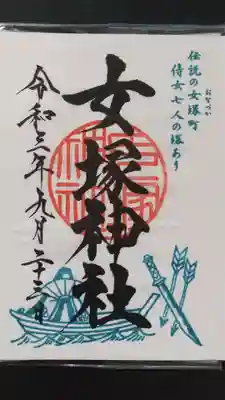 伝説の女塚町
おなづか
侍女七人の塚あり
女塚神社
令和三年九月二十三日